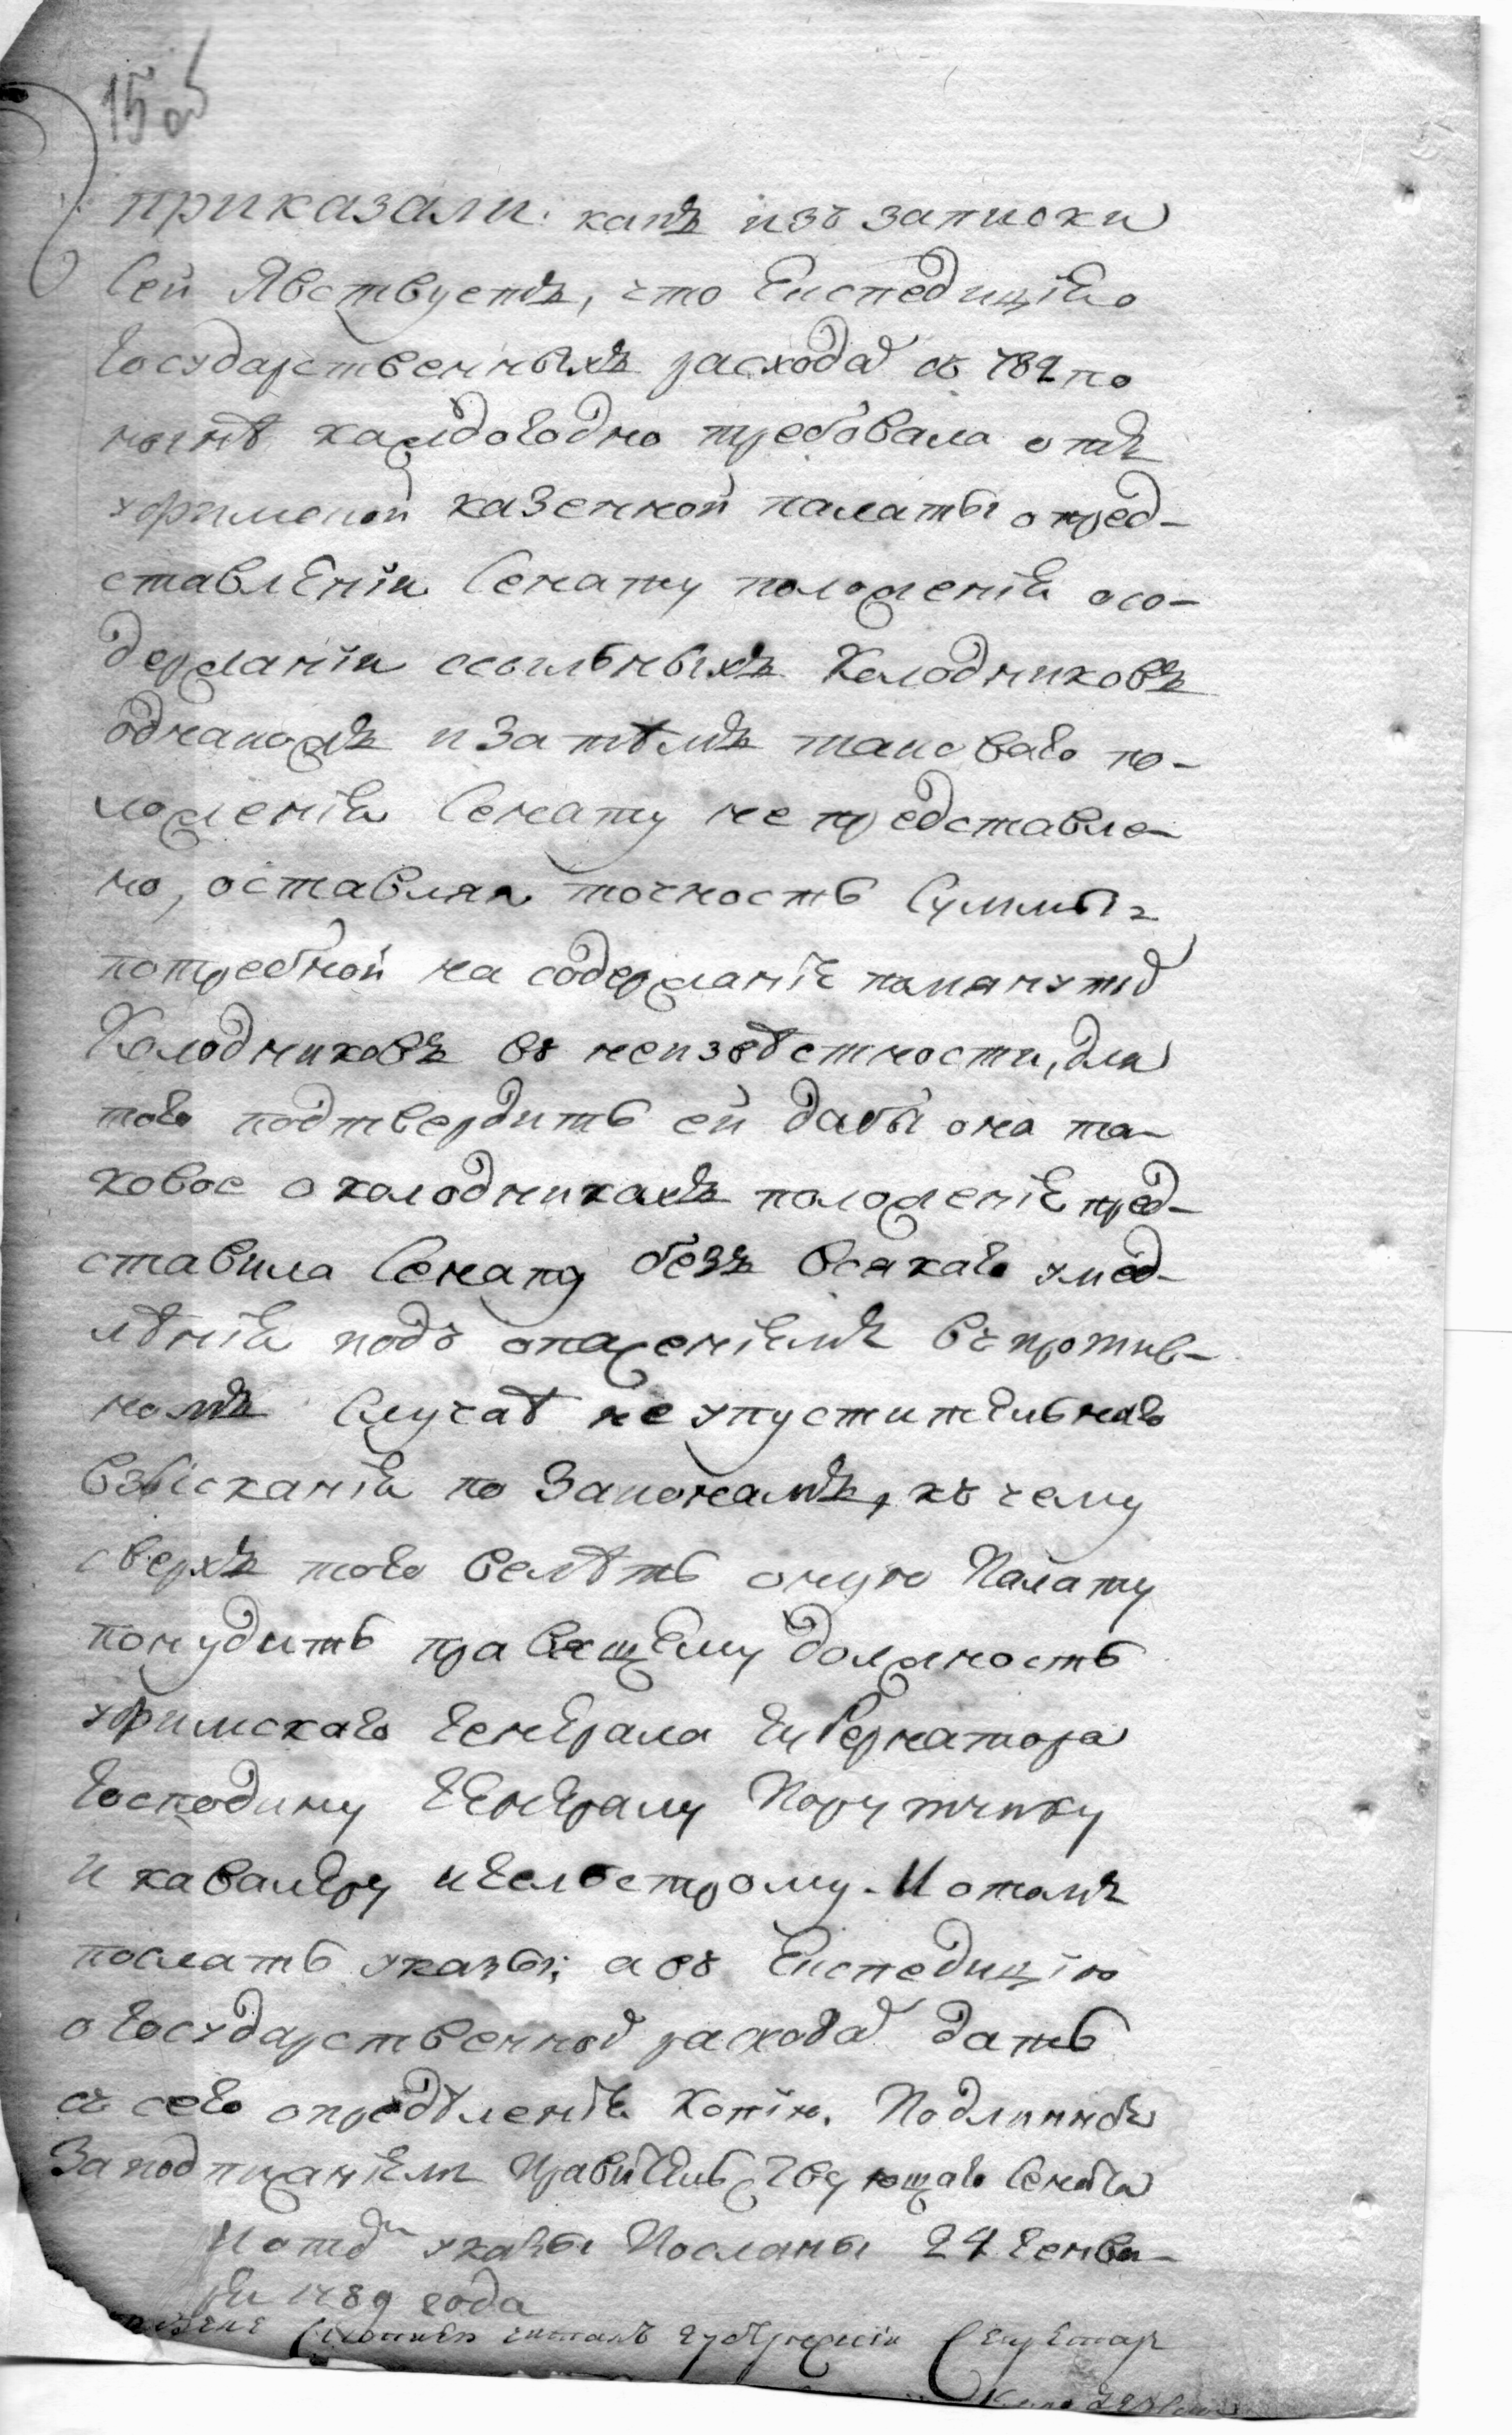 15 об
приказали: какъ изъ записки
сей явствуетъ, что Експедицїя
Государственныхъ расходовъ съ 782 по
нынѣ каждогодно требовала отъ
уфимской казенной палаты о пред-
ставленїи Сенату положенїя о со-
держанїи ссыльныхъ Колодниковъ
однакожъ и за тѣмъ таковаго по-
ложенїя Сенату не представле-
но, оставляя точность суммы=
потребной на содержанїе помянутых
Колодниковъ въ неизвѣстности, для
того подтвердить ей дабы она та-
ковое о колодникахъ положенїе пред-
ставила Сенату безъ всякаго умед-
лѣнїя подъ опасенїемъ въ против-
номъ случаѣ неупустительнаго
взысканїя по Законамъ, къ чему
сверхъ того велѣть оную Палату
понудить правящему должность
уфимскаго Генерала Губернатора
Господину Генералу Порутчику
и кавалеру Игельстрому. И о томъ
послать указы; а въ Експедицїю
о Государственных расходах дать
съ сего опредѣленїя Копїю. Подлинное
За подписанїем Правительствующаго Сената
И о том указы Посланы 24 Генва-
ря 1789 года
читалъ Губернскїй Секретарь